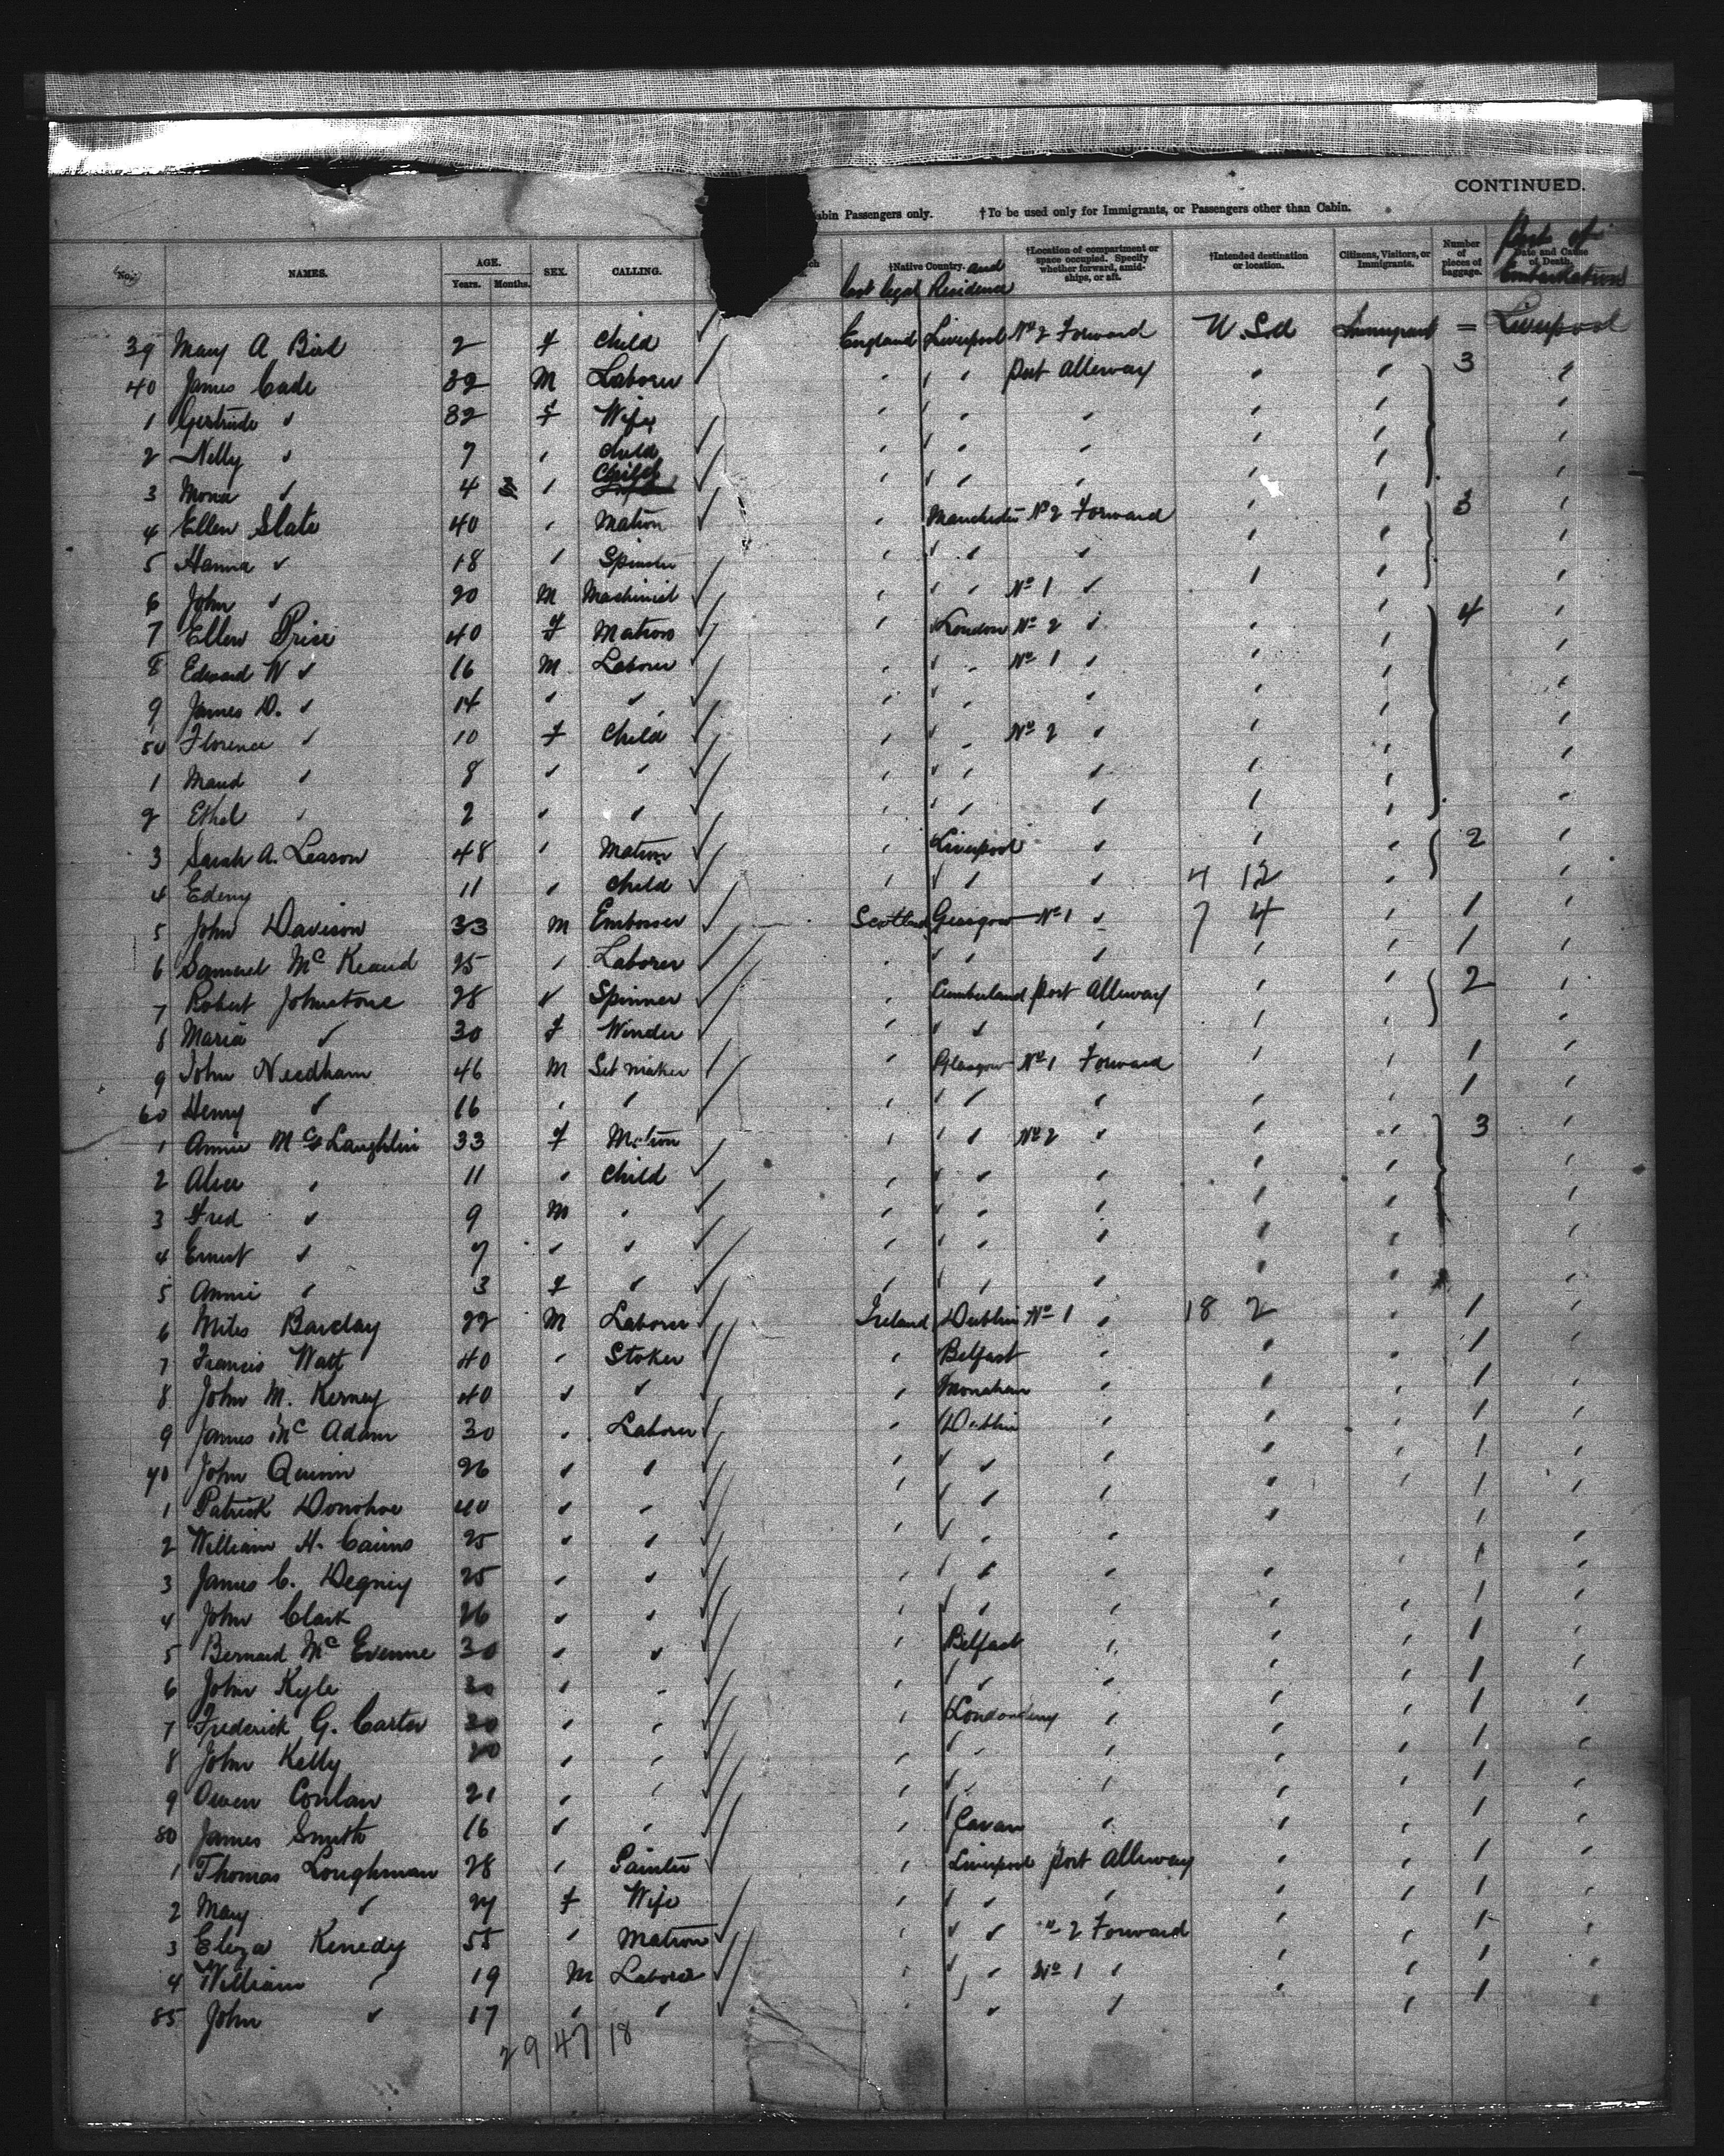 CONTINUED.
abin Passengers only. †To be used only for Immigrants, or Passengers other than Cabin.
No. NAMES. AGE. Years. Months. SEX. CALLING. †Native Country. and last legal Residence †Location of compartment or space occupied. Specify whether forward, amidships, or aft. †Intended destination or location. Citizens, Visitors, or Immigrants. Number of pieces of baggage. Date and Cause of Death. Port of Embarkation
39 Mary A Bird 2 f Child England Liverpool No 2 Forward U.S.A Immigrant = Liverpool
40 James Cade 32 M Laborer " " " Port Alleway " " 3 "
1 Gertrude " 32 f Wife " " " " " " "
2 Nelly " 7 " Child " " " " " " "
3 Mona " 4 " Child " " " " " " "
4 Ellen Slate 40 " Matron " Manchester No 2 Forward " " 3 "
5 Hanna " 18 " Spinster " " " " " " "
6 John " 20 M Machinist " " " No 1 " " " "
7 Ellen Price 40 f Matron " London No 2 " " " 4 "
8 Edward W " 16 M Laborer " " " No 1 " " " "
9 James D. " 14 " " " " " " " "
50 Florence " 10 f Child " " " No 2 " " " "
1 Maud " 8 " " " " " " " " "
2 Ethel " 2 " " " " " " " " "
3 Sarah A. Leason 48 " Matron " Liverpool " " " 2 "
4 Edeny 11 " Child " " " " 4 12 " "
5 John Davison 33 M Embosser Scotland Glasgow No 1 " 7 4 " 1 "
6 Samuel Mc Keand 25 " Laborer " " " " " " 1 "
7 Robert Johnstone 28 " Spinner " Cumberland Port Alleway " " 2 "
8 Maria " 30 f Winder " " " " " " "
9 John Needham 46 M Set maker " Glasgow No 1 Forward " " 1 "
60 Henry " 16 " " " " " " " " 1 "
1 Annie McLaughlin 33 f Matron " " " No 2 " " " 3 "
2 Alice " 11 " Child " " " " " " "
3 Fred " 9 M " " " " " " " "
4 Ernest " 7 " " " " " " " " "
5 Annie " 3 f " " " " " " " "
6 Miles Barclay 22 M Laborer Ireland Dublin No 1 " 18 2 " 1 "
7 Francis Watt 40 " Stoker " Belfast " " " 1 "
8 John M. Kerney 40 " " " Monahan " " " 1 "
9 James Mc Adam 30 " Laborer " Dublin " " " 1 "
70 John Quinn 26 " " " " " " " " 1 "
1 Patrick Donohoe 40 " " " " " " " " 1 "
2 William H. Cairns 25 " " " " " " " 1 "
3 James C. Degney 25 " " " " " " " 1 "
4 John Clark 26 " " " " " " " " 1 "
5 Bernard Mc Evenne 30 " " " Belfast " " " 1 "
6 John Kyle 30 " " " " " " " 1 "
7 Frederick G. Carter 30 " " " Londonderry " " " 1 "
8 John Kelly 20 " " " " " " " " 1 "
9 Owen Conlan 21 " " " " " " " 1 "
80 James Smith 16 " " " Cavan " " " 1 "
1 Thomas Loughman 28 " Painter " Liverpool Port Alleway " " 1 "
2 Mary " 27 f Wife " " " " " " 1 "
3 Eliza Kenedy 55 " Matron " " " " 2 Forward " " 1 "
4 William " 19 M Laborer " " " No 1 " " " 1 "
85 John " 17 " " " " " " " 1 "
29 47 18